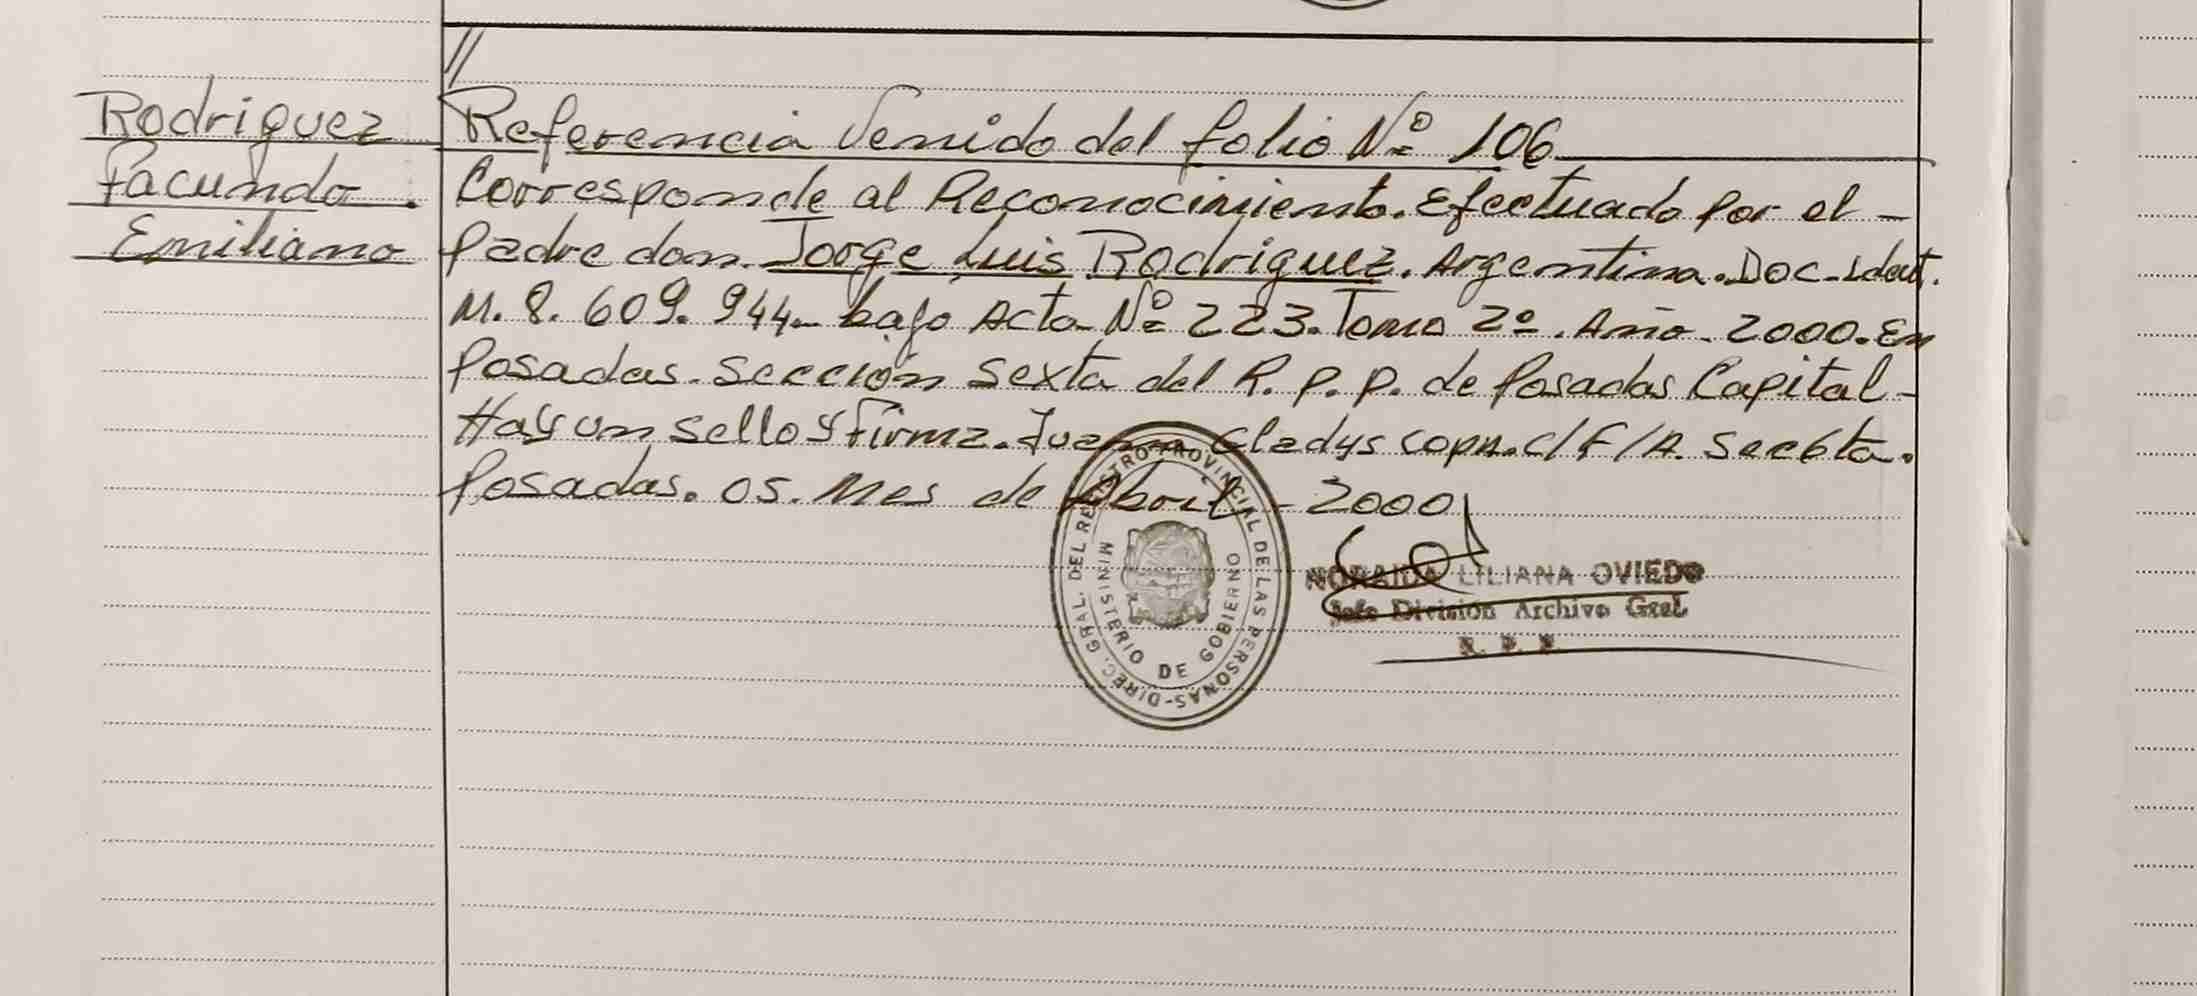 //
Rodriguez
Facundo.
Emiliano
Referencia Venido del folio Nº 106
Corresponde al Reconocimiento. Efectuado por el -
Padre don. Jorge Luis Rodriguez. Argentina. Doc-Ident.
M. 8. 609. 944- bajo Acta Nº 223. Tomo 2º. Año. 2000. En
Posadas. Sección Sexta del R. P. P. de Posadas Capital -
Hay un sello y firma. Juana Gladys C/F/A.
Posadas. 05. Mes de Abril - 2000
DIREC. GRAL. DEL REGISTRO PROVINCIAL DE LAS PERSONAS-
MINISTERIO DE GOBIERNO
NORAIDA LILIANA OVIEDO
Jefe División Archivo Gral
R. P. P.